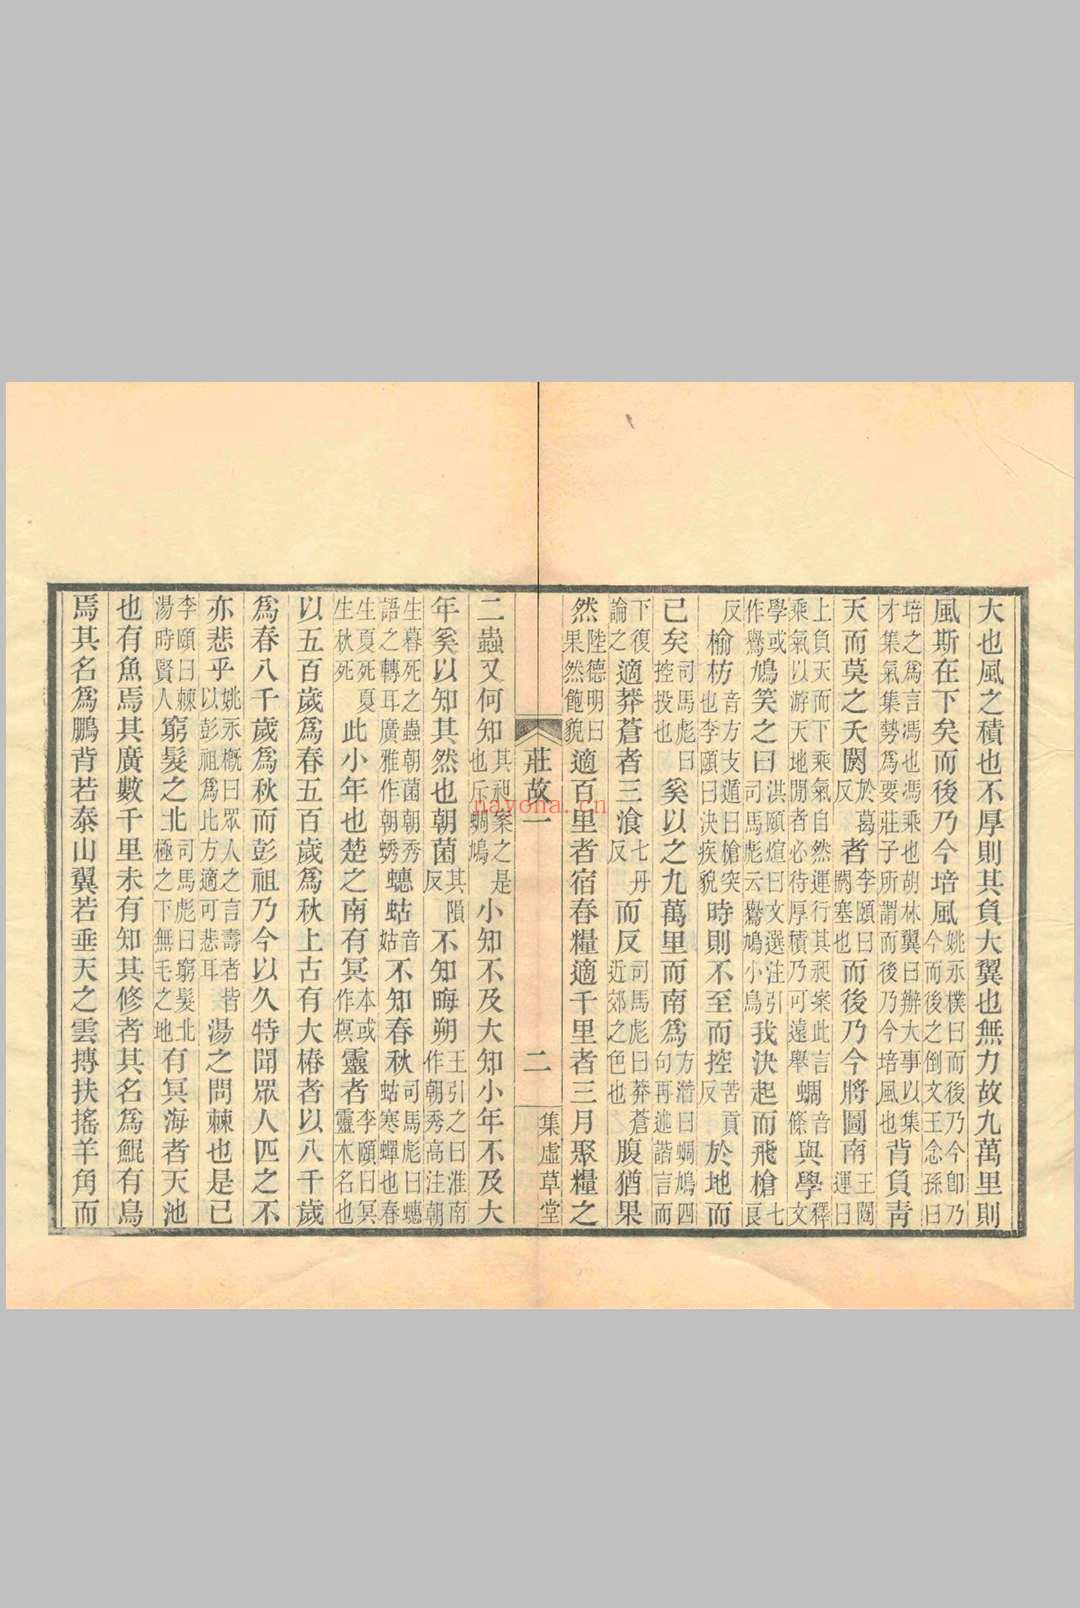 大也風之積也不厚則其負大翼也無力故九萬里則
風斯在下矣而後乃今培風姚永樸曰而後乃今卽乃今而後之倒文王念孫曰
培之爲言馮也馮乘也胡林翼曰辦大事以集才集氣集勢爲要莊子所謂而後乃今培風也背負靑
天而莫之夭閼於葛反者李頤曰閼塞也而後乃今將圖南王闓運曰
上負天而下乘氣自然運行其昶案此言乘氣以游天地閒者必待厚積乃可遠舉蜩音條與學釋文
學或作鷽鳩笑之曰洪頤煊曰文選注引司馬彪云鷽鳩小鳥我決起而飛槍七良
反榆枋音方支遁曰槍突也李頤曰決疾貌時則不至而控苦貢反於地而
已矣司馬彪曰控投也奚以之九萬里而南爲方潛曰蜩鳩四句再述諧言而
下復論之適莽蒼者三飡七丹反而反司馬彪曰莽蒼近郊之色也腹猶果
然陸德明曰果然飽貌適百里者宿舂糧適千里者三月聚糧之
莊故一 二 集虛草堂
二蟲又何知其昶案之是也斥蜩鳩小知不及大知小年不及大
年奚以知其然也朝菌其隕反不知晦朔王引之曰淮南作朝秀高注朝
生暮死之蟲朝菌朝秀語之轉耳廣雅作朝蜏蟪蛄音姑不知春秋司馬彪曰蟪蛄寒蟬也春
生夏死夏生秋死此小年也楚之南有冥本或作榠靈者李頤曰冥靈木名也
以五百歲爲春五百歲爲秋上古有大椿者以八千歲
爲春八千歲爲秋而彭祖乃今以久特聞眾人匹之不
亦悲乎姚永概曰眾人之言壽者皆以彭祖爲比方適可悲耳湯之問棘也是已
李頤曰棘湯時賢人窮髮之北司馬彪曰窮髮北極之下無毛之地有冥海者天池
也有魚焉其廣數千里未有知其修者其名爲鯤有鳥
焉其名爲鵬背若泰山翼若垂天之雲摶扶搖羊角而
nayona.cn